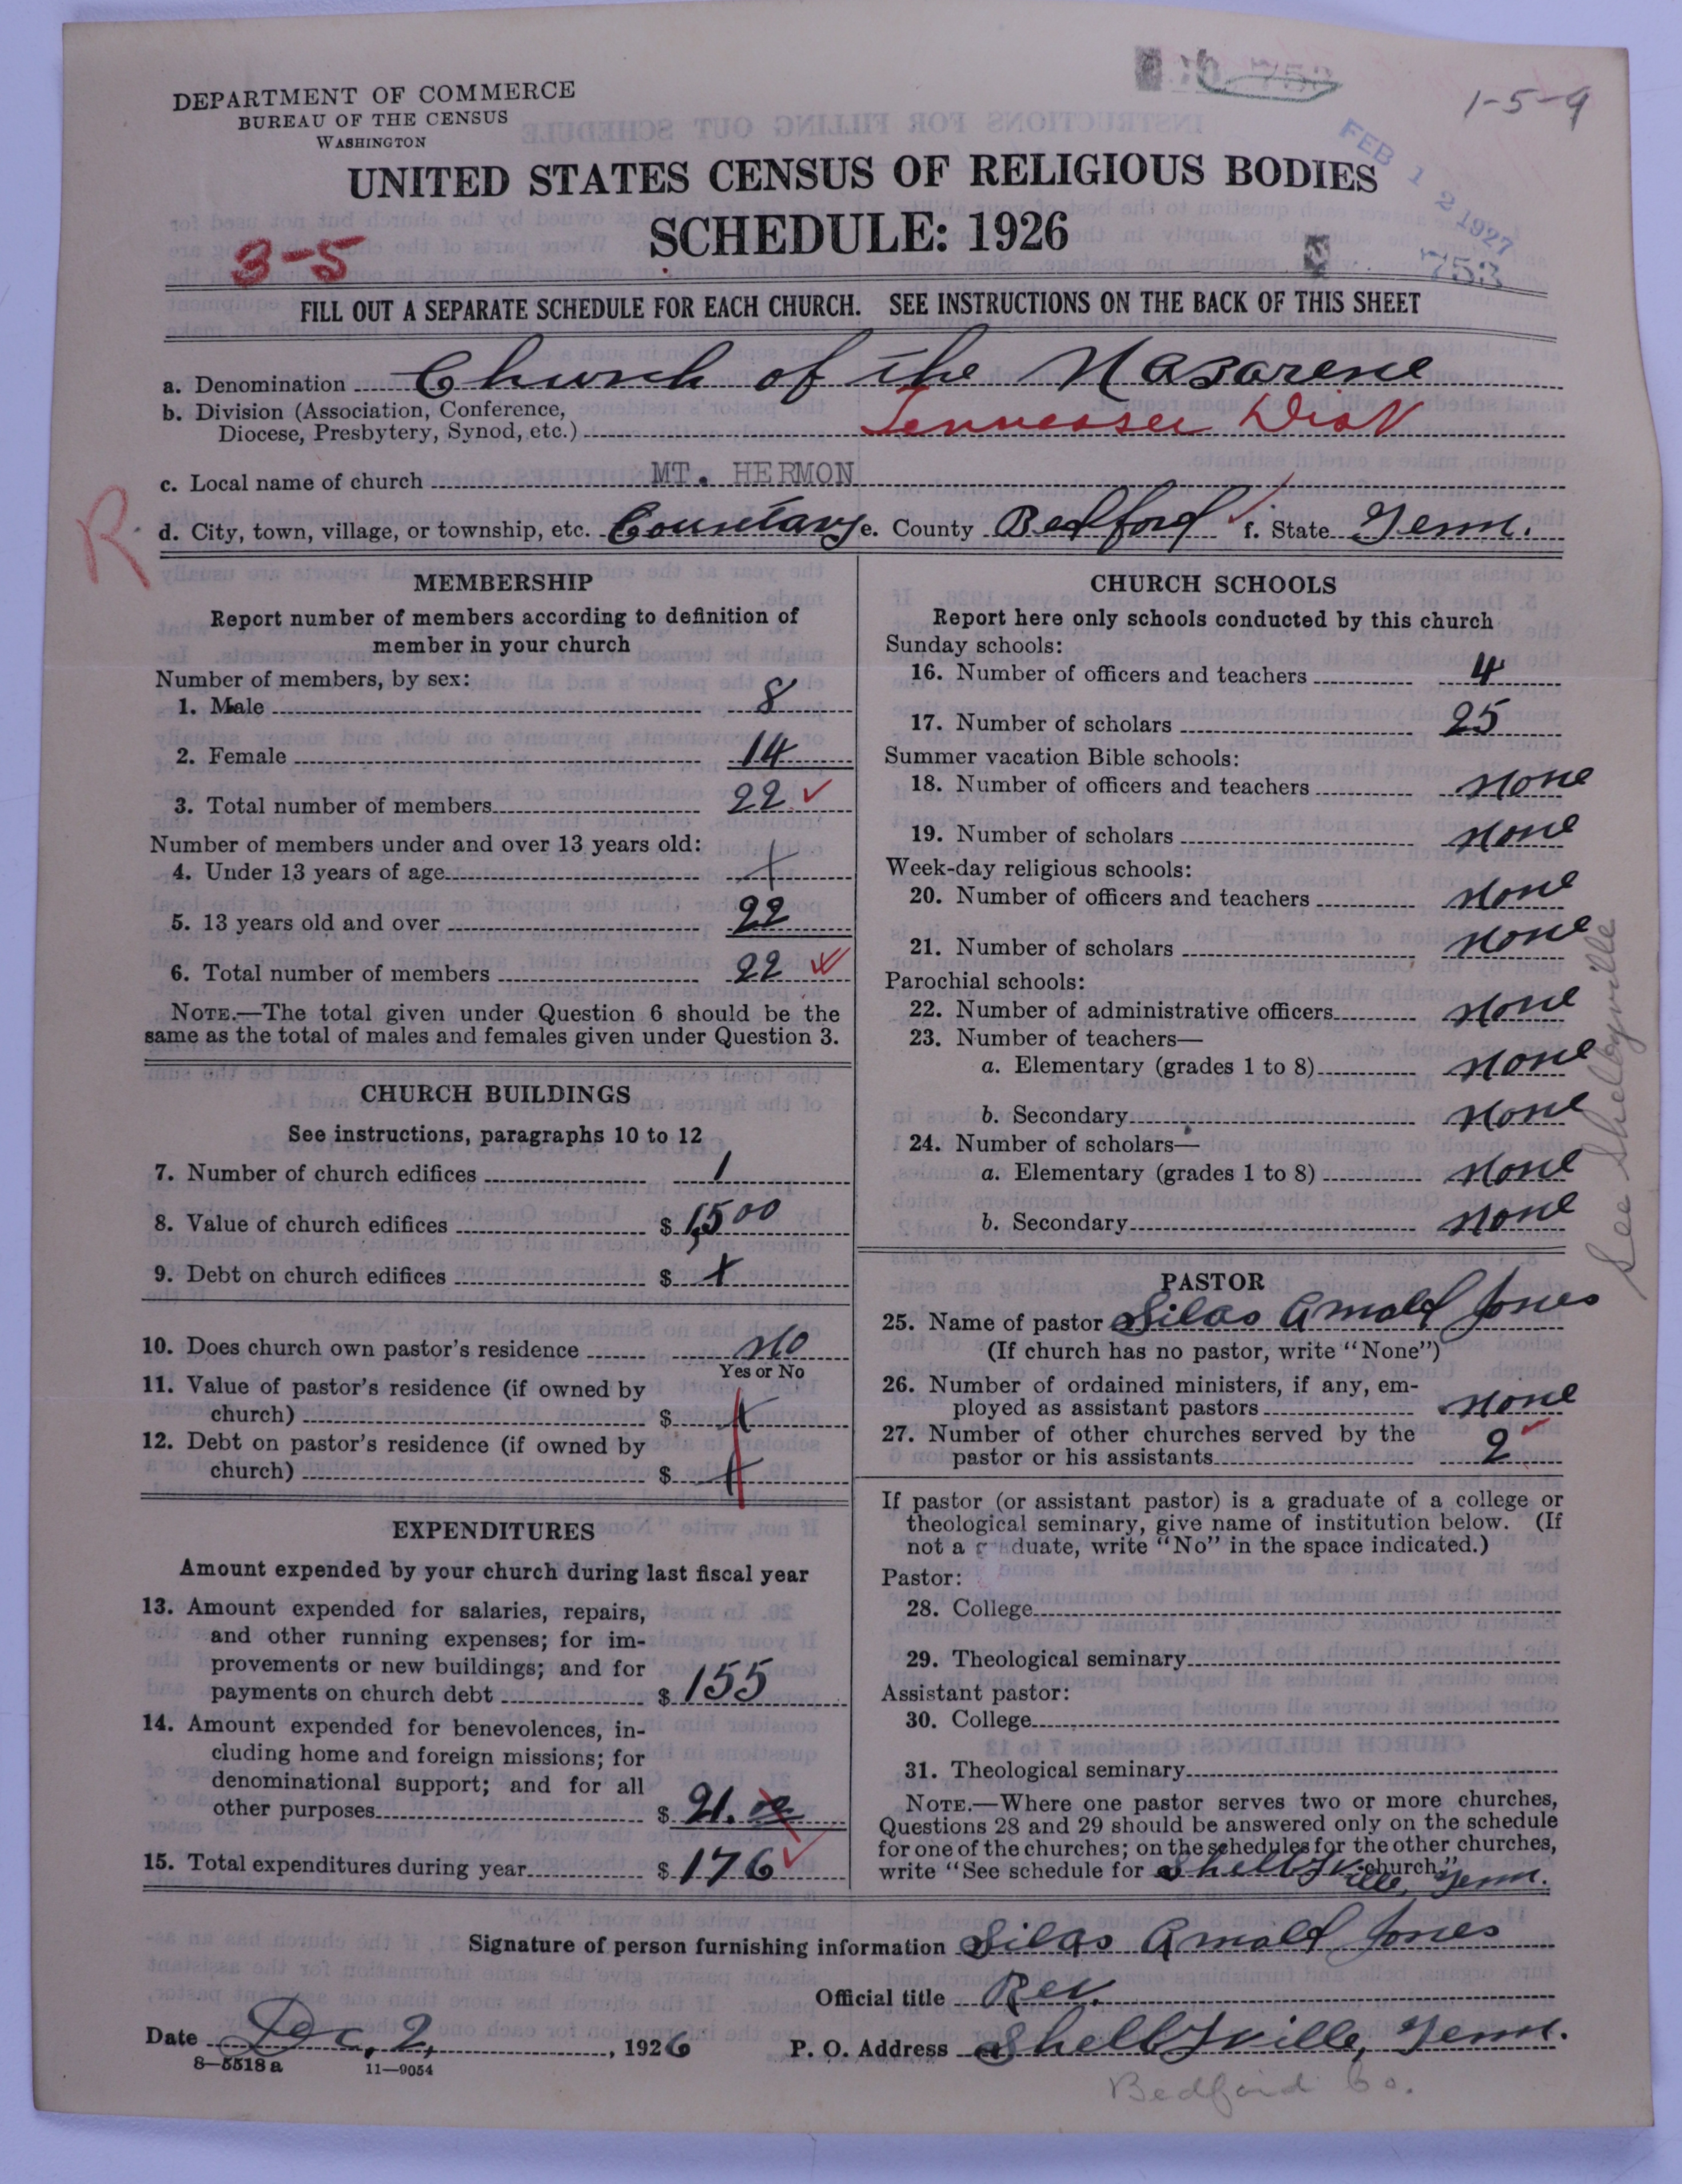 1-5-9
DEPARTMENT OF COMMERCE
BUREAU OF THE CENSUS
WASHINGTON
FEB 12 1927
753
UNITED STATES CENSUS OF RELIGIOUS BODIES
SCHEDULE: 1926
3-5
FILL OUT A SEPARATE SCHEDULE FOR EACH CHURCH. SEE INSTRUCTIONS ON THE BACK OF THIS SHEET
a. Denomination Church of the Nazarene
b. Division (Association, Conference,
Diocese, Presbytery, Synod, etc.) Tennessee Dist
c. Local name of church MT. HERMON
R
d. City, town, village, or township, etc. Country e. County Bedford f. State Tenn.
MEMBERSHIP
Report number of members according to definition of
member in your church
Number of members, by sex:
1. Male 8
2. Female 14
3. Total number of members 22 ✓
Number of members under and over 13 years old:
4. Under 13 years of age +
5. 13 years old and over 22
6. Total number of members 22 ✓
NOTE.—The total given under Question 6 should be the
same as the total of males and females given under Question 3.
CHURCH BUILDINGS
See instructions, paragraphs 10 to 12
7. Number of church edifices 1
8. Value of church edifices $ 1,500
9. Debt on church edifices $ +
10. Does church own pastor's residence No
Yes or No
11. Value of pastor's residence (if owned by
church) $ +
12. Debt on pastor's residence (if owned by
church) $ +
EXPENDITURES
Amount expended by your church during last fiscal year
13. Amount expended for salaries, repairs,
and other running expenses; for im-
provements or new buildings; and for
payments on church debt $ 155
14. Amount expended for benevolences, in-
cluding home and foreign missions; for
denominational support; and for all
other purposes $ 21.
15. Total expenditures during year $ 176 ✓
CHURCH SCHOOLS
Report here only schools conducted by this church
Sunday schools:
16. Number of officers and teachers 4
17. Number of scholars 25
Summer vacation Bible schools:
18. Number of officers and teachers None
19. Number of scholars None
Week-day religious schools:
20. Number of officers and teachers None
21. Number of scholars None
Parochial schools:
22. Number of administrative officers None
23. Number of teachers—
a. Elementary (grades 1 to 8) None
b. Secondary None
24. Number of scholars—
a. Elementary (grades 1 to 8) None
b. Secondary None
See Shelbyville
PASTOR
25. Name of pastor Silas Arnold Jones
(If church has no pastor, write "None")
26. Number of ordained ministers, if any, em-
ployed as assistant pastors None
27. Number of other churches served by the
pastor or his assistants 2 ✓
If pastor (or assistant pastor) is a graduate of a college or
theological seminary, give name of institution below. (If
not a graduate, write "No" in the space indicated.)
Pastor:
28. College
29. Theological seminary
Assistant pastor:
30. College
31. Theological seminary
NOTE.—Where one pastor serves two or more churches,
Questions 28 and 29 should be answered only on the schedule
for one of the churches; on the schedules for the other churches,
write "See schedule for Shelbyville, Tenn. church."
Signature of person furnishing information Silas Arnold Jones
Official title Rev.
Date Dec, 2, , 1926
P. O. Address Shelbyville, Tenn.
8-5518a 11-9054
Bedford Co.